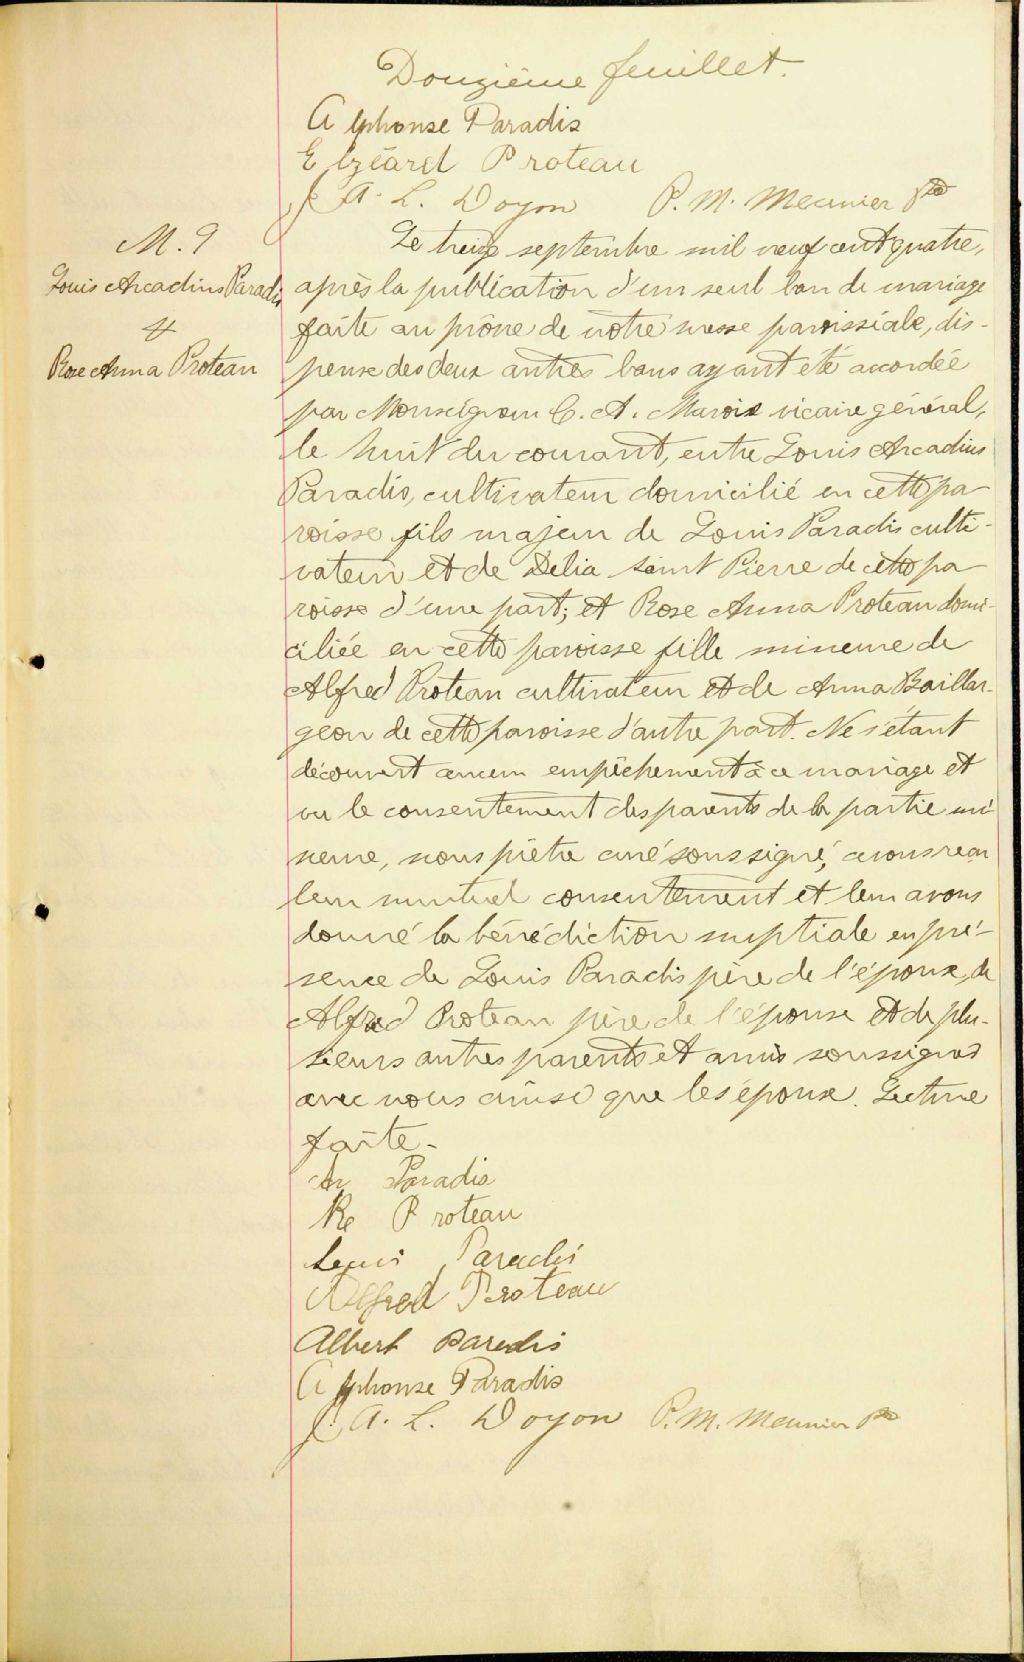 Douzième feuillet.
Alphonse Paradis
Elzéard Proteau
J. A. L. Doyon P. M. Meunier Ptre
M. 9
Louis Arcadius Paradis
&
Rose Anna Proteau
Le treize septembre mil neuf cent quatre,
après la publication d'un seul ban de mariage
faite au prône de notre messe paroissiale, dis-
pense des deux autres bans ayant été accordée
par Monseigneur C. A. Marois vicaire général,
le huit du courant, entre Louis Arcadius
Paradis, cultivateur domicilié en cette pa-
roisse fils majeur de Louis Paradis culti-
vateur et de Delia Saint Pierre de cette pa-
roisse d'une part; et Rose Anna Proteau domi-
ciliée en cette paroisse fille mineure de
Alfred Proteau cultivateur et de Anna Baillar-
geon de cette paroisse d'autre part. Ne s'étant
découvert aucun empêchement à ce mariage et
vu le consentement des parents de la partie mi-
neure, nous prêtre curé soussigné, avons reçu
leur mutuel consentement et leur avons
donné la bénédiction nuptiale en pré-
sence de Louis Paradis père de l'époux, de
Alfred Proteau père de l'épouse et de plu-
sieurs autres parents et amis soussignés
avec nous ainsi que les époux. Lecture
faite.
Ar Paradis
Re Proteau
Louis Paradis
Alfred Proteau
Albert Paradis
Alphonse Paradis
J. A. L. Doyon P. M. Meunier Ptre